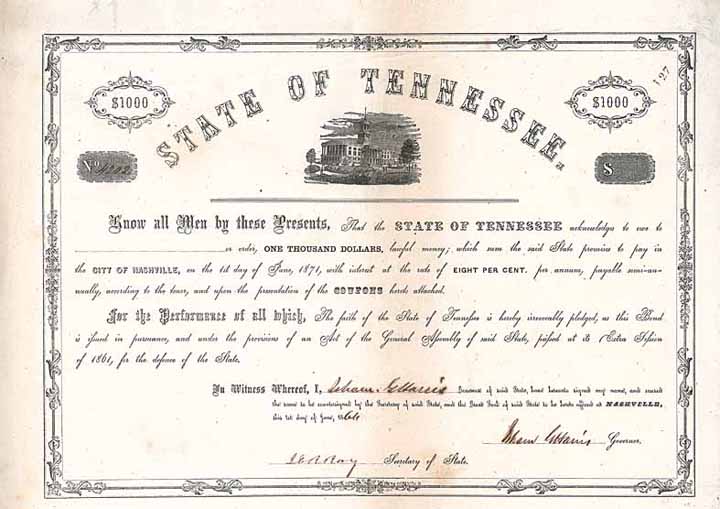 127
STATE OF TENNESSEE.
$1000
$1000
No.
$
Know all Men by these Presents, That the STATE OF TENNESSEE acknowledges to owe to
or order, ONE THOUSAND DOLLARS, lawful money; which sum the said State promises to pay in
the CITY OF NASHVILLE, on the 1st day of June, 1871, with interest at the rate of EIGHT PER CENT. per annum, payable semi-an-
nually, according to the tenor, and upon the presentation of the COUPONS hereto attached.
For the Performance of all which, The faith of the State of Tennessee is hereby irrevocably pledged, as this Bond
is issued in pursuance, and under the provisions of an Act of the General Assembly of said State, passed at its Extra Session
of 1861, for the defence of the State.
In Witness Whereof, I, Isham G Harris Governor of said State, have hereunto signed my name, and caused
the same to be countersigned by the Secretary of said State, and the Great Seal of said State to be hereto affixed at NASHVILLE,
this 1st day of June, 186
Isham G Harris Governor.
J E R Ray Secretary of State.